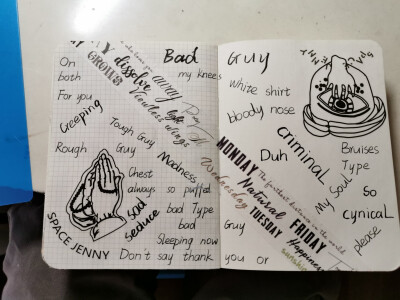 Bad
my knees
On
both
For you
GROWS
dissolve
away
Creeping
Tough Guy
Rough Guy
Madness
Chest
always so puffed
bad Type
bad
Sad
seduce
Sleeping now
SPACE JENNY
Don't say thank
Guy
white shirt
bloody nose
criminal
Duh
Bruises
Type
My Soul
So
cynical
please
MONDAY
Wednesday
Natural
TUESDAY
The furthest distance in the world
FRIDAY
Happiness
sunshine
Guy
you or